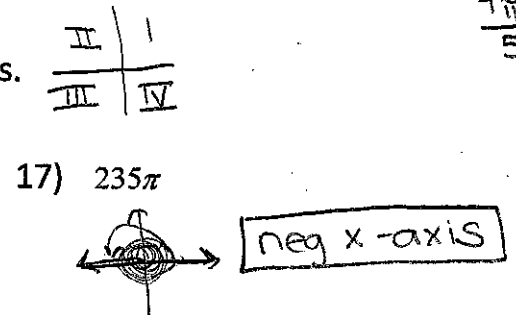 II I
s.
III IV
17) 235π
neg x-axis